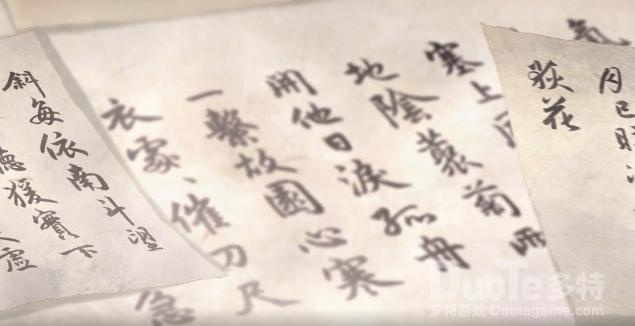 氣
月已映
荻花
塞上
地陰叢菊兩
開他日淚孤舟
一繫故園心寒
衣處、催刀尺
急
斜每依南斗望
猿實下
虛
DuoTe多特
多特游戏 Duotegame.com